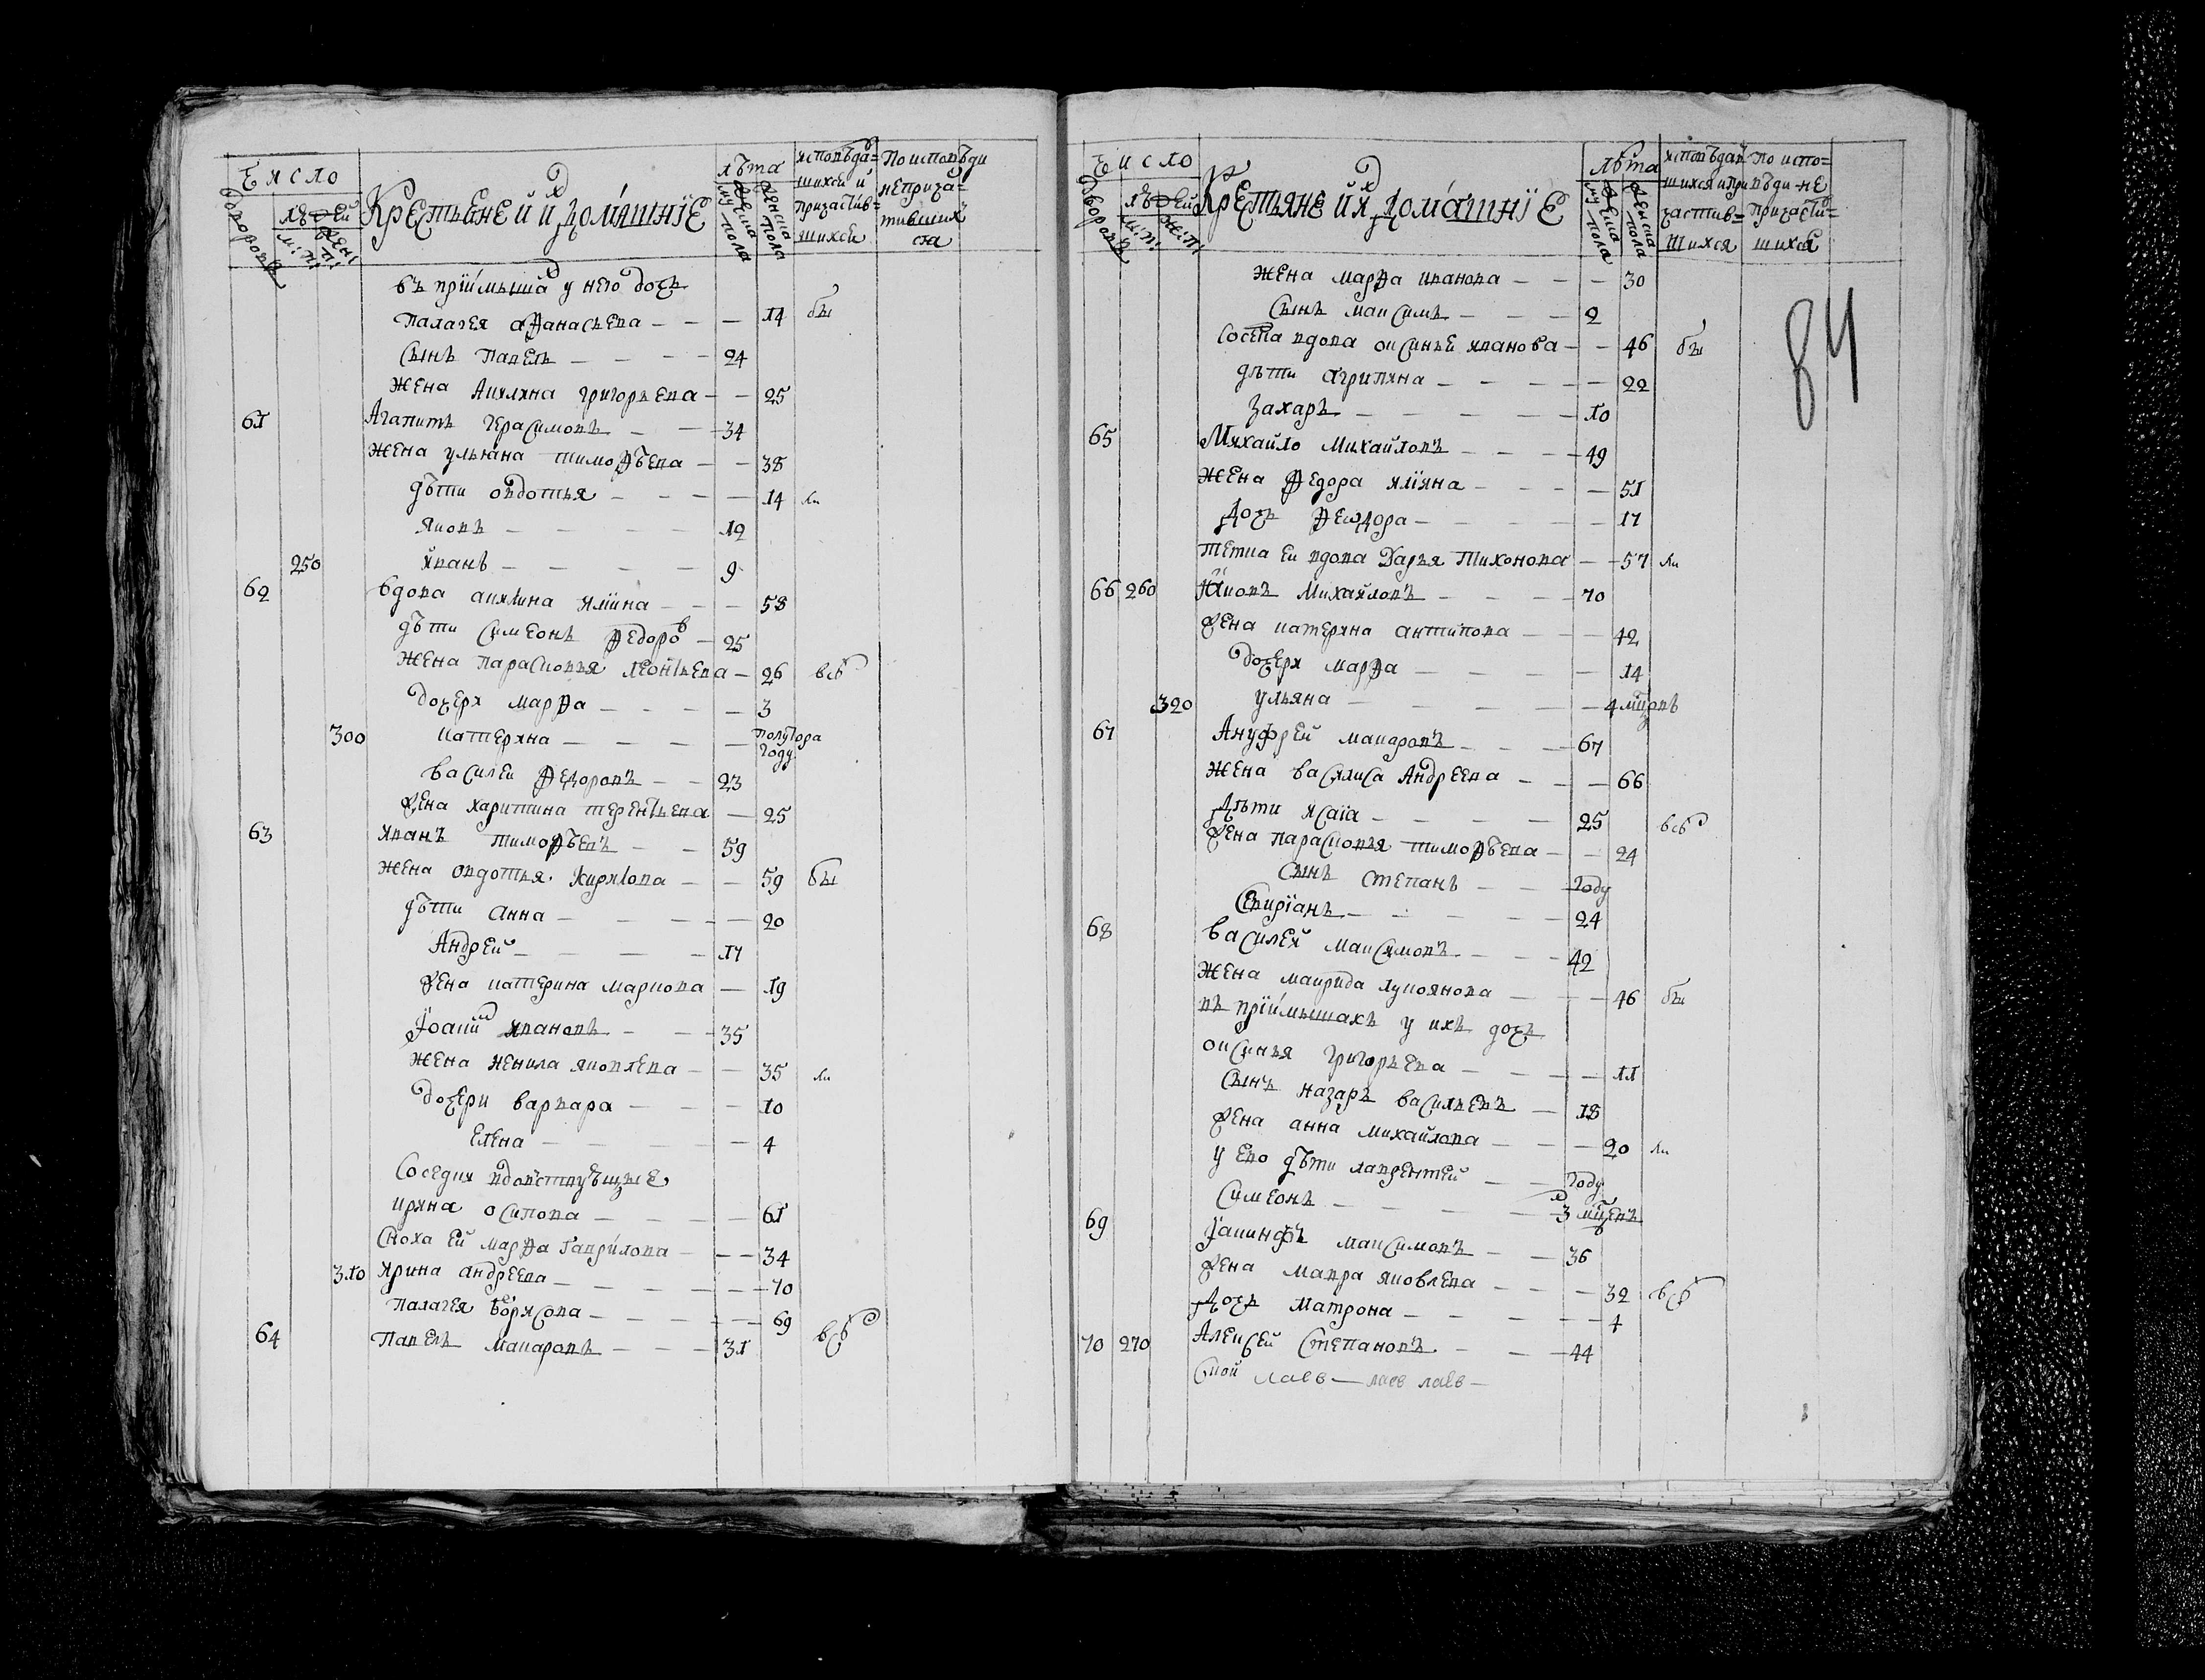 Число
Дворовъ
людей
м: п:
жен: п:
Крестьяне и ихъ домашнїе
лѣта
мужеска пола
женска пола
исповѣдавшихся и причастившихся
По исповѣди непричастившихся
въ прїймыша у него дочь
Палагея афанасьева — — — 14 бы
сынъ Павелъ — — — — 24
Жена Акилина григорьева — — 25
61 Агапитъ Герасимовъ — — 34
Жена ульяна тимофѣева — — 38
дѣти овдотья — — — — 14 ли
яковъ — — — — 12
250 иванъ — — — — 9
62 вдова акилина иліина — — — 58
дѣти Симеонъ Федоровъ — 25
Жена Парасковья леонтьева — 26 всѣ
дочери марфа — — — — 3
300 катерина — — — — полутора году
василеи Федоровъ — — 23
жена харитина терентьева — 25
63 иванъ тимофѣевъ — — 59
Жена овдотья кирилова — — 59 бы
дѣти анна — — — — 20
Андрей — — — — 17
жена катерина маркова — 19
Їоаннъ ивановъ — — 35
Жена ненила яковлева — — 35 ли
дочери варвара — — — 10
Елена — — — — 4
Соседки вдовствующые
ирина осипова — — — — 61
Сноха ей марфа гаврилова — — — 34
310 ирина андреева — — — — 70
палагея борисова — — — — 69
64 Павелъ макаровъ — — — 31 всѣ
Число
Дворовъ
людей
м: п:
ж: п:
Крестьяне и ихъ домашнїе
лѣта
мужеска пола
женска пола
исповѣдавшихся и причастившихся
По исповѣди не причастившихся
84
Жена марфа иванова — — — 30
Сынъ максимъ — — — 2
соседка вдова оксинья иванова — — 46 бы
дѣти агрипина — — — — — 22
Захаръ — — — — — 10
65 Михайло Михайловъ — — — 49
Жена Федора иліина — — — — 51
дочь Феѡдора — — — — — 17
тетка ей вдова Дарья Тихонова — — 57 ли
66 260 Яковъ Михайловъ — — — — 70
жена катерина антипова — — — 42
дочери марфа — — — — 14
320 ульяна — — — — — 4 мцовъ
67 Ануфрей макаровъ — — — 67
Жена василиса Андреева — — — 66
дѣти исаїа — — — — 25 всѣ
жена парасковья тимофѣева — — 24
сынъ степанъ — — году
Свирїанъ — — — — — 24
68 василей максимовъ — — — 42
Жена маврида лукоянова — — — 46 бы
въ прїймышахъ у ихъ дочь
оксинья григорьева — — — — 11
сынъ назаръ васильевъ — 18
жена анна михайлова — — — 20 ли
у ево дѣти лаврентей — — году
Симеонъ — — — — — 3 мцевъ
69 Їакинфъ максимовъ — — 36
жена мавра яковлева — — — 32 всѣ
дочь матрона — — — — — 4
70 270 Алексей Степановъ — — — 44